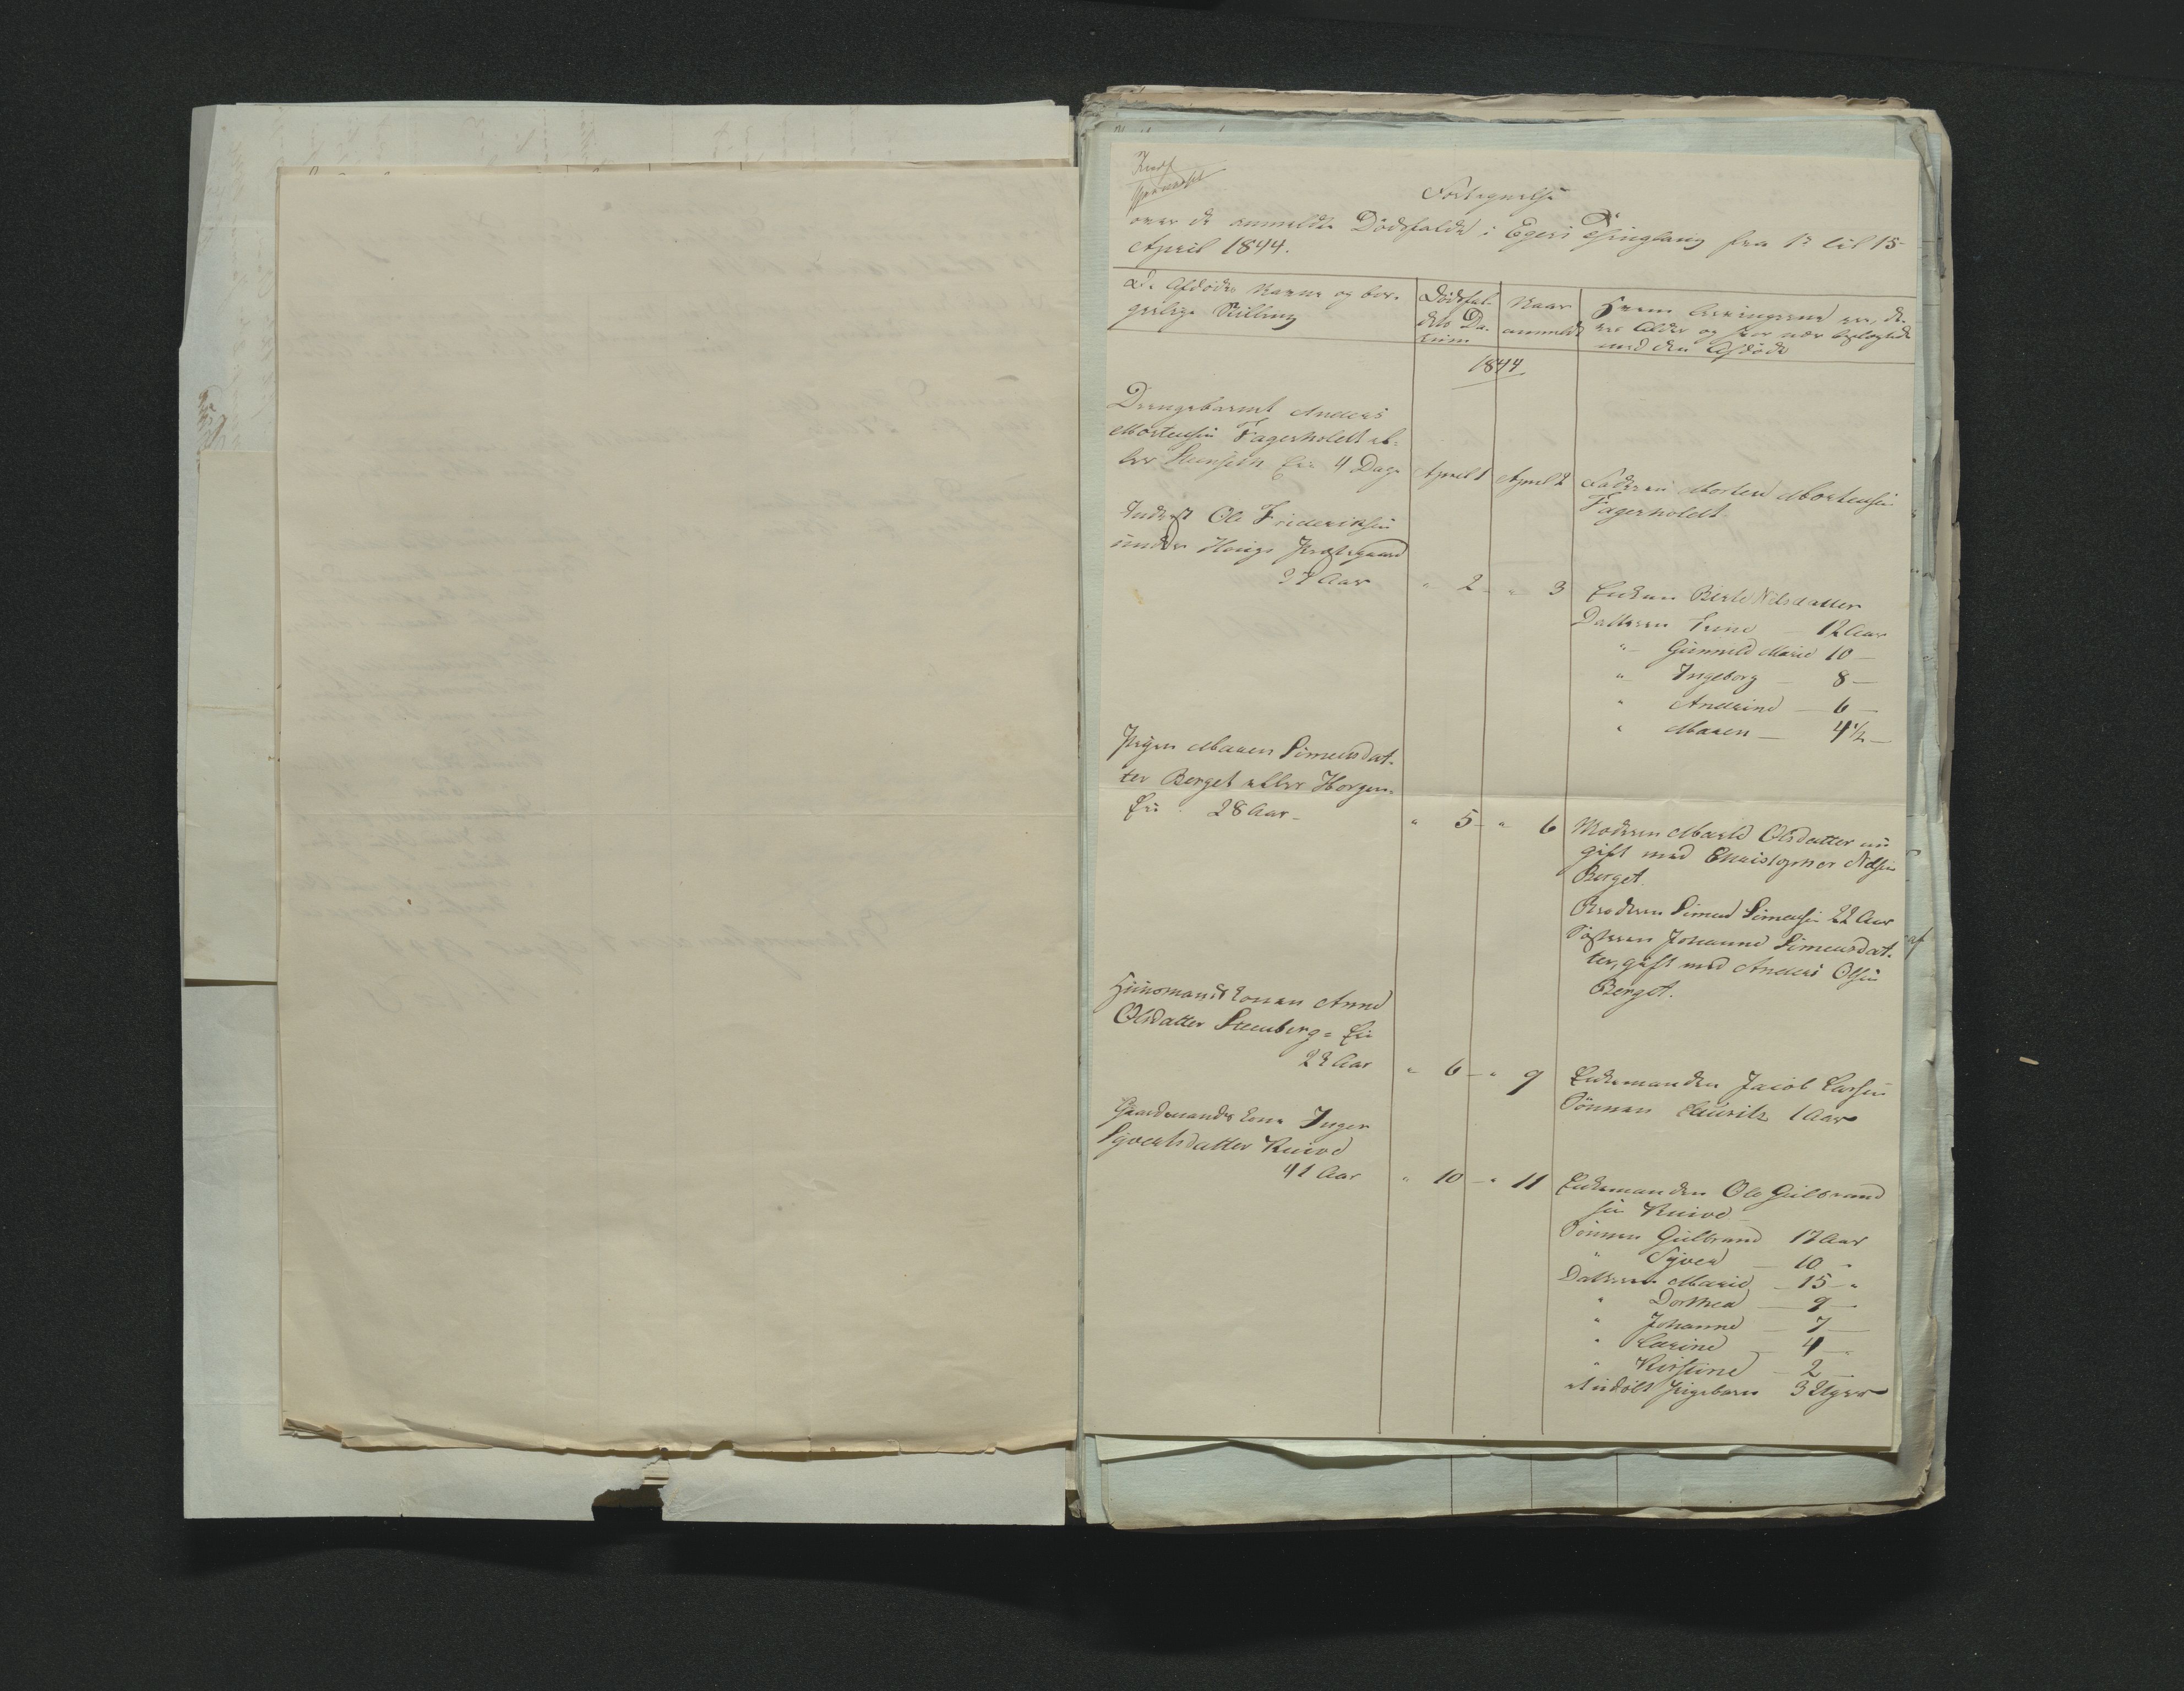 Fortegnelse
over de anmeldte Dødsfalde i Egers Thinglaug fra 1 til 15
April 1844.
De Afdødes Navne og bor-
gerlige Stilling
Dødsfal-
dets Da-
tum
Naar
anmeldt
Hvem Arvingerne ere, de-
res Alder og hvor nær beslægtede
med den Afdøde
1844
Drengebarnet Anders
Mortensen Fagerholdt el-
ler 4 Dage
April 1 April 2 Faderen Morten Mortensen
Fagerholdt
Inderst Ole Frideriksen
under Hougs Præstegaard
Aar
" 2 - " 3 Enken Berte Nilsdatter
Datteren 12 Aar
" Gunnild Marie 10 -
" Ingeborg - 8 -
" Andrine - 6 -
" Maren - 4½ -
Pigen Maren Simensdat-
ter Berget eller Horgen-
Eie 28 Aar -
" 5 - " 6 Moderen Marte Olsdatter nu
gift med Christopher Nilsen
Berget.
Broderen Simen Simensen 22 Aar
Søsteren Johanne Simensdat-
ter, gift med Anders Olsen
Berget.
Huusmandskonen Anne
Olsdatter Steenberg-Eie
Aar
" 6 - " 9 Enkemanden Jacob Larsen
Sønnen Lauritz 1 Aar
Gaardmands Kone Inger
Syvertsdatter Ruud
41 Aar
" 10 - " 11 Enkemanden Ole Gulbrand
sen
Sønnen Gulbrand 17 Aar
" Syver - 10 -
Datteren Marie - 15 - "
" Dorthea - 9 -
" Johanne - 7 -
" Karine - 4 -
" Kirstine - 2 -
et udøbt Pigebarn 3 Uger